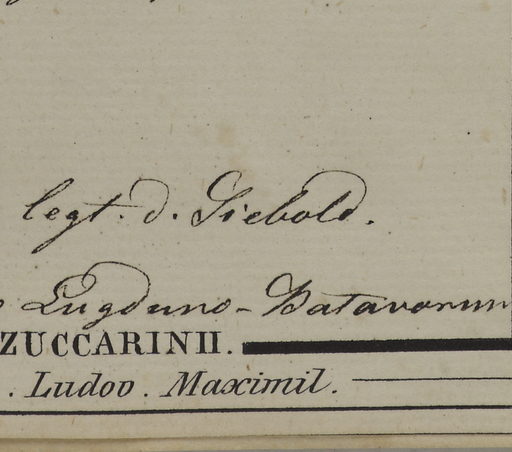 legt. d. Siebold.
Lugduno-Batavorum
ZUCCARINII.
. Ludov. Maximil.